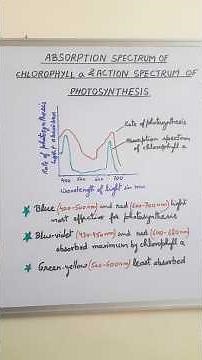 ABSORPTION SPECTRUM OF
CHLOROPHYLL a & ACTION SPECTRUM OF
PHOTOSYNTHESIS
Rate of photosynthesis
Light absorbed
Rate of photosynthesis
Absorption spectrum
of chlorophyll a
400 500 600 700
Wavelength of light in nm
Blue (400-500nm) and red (600-700nm) light
most effective for photosynthesis
Blue-violet (430-450nm) and red (640-680nm)
absorbed maximum by chlorophyll a
Green-yellow (500-600nm) least absorbed